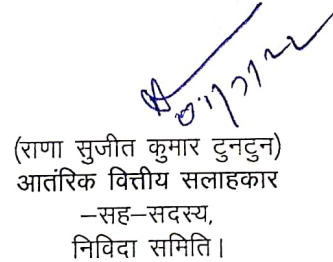 (राणा सुजीत कुमार टुनटुन)
आतंरिक वित्तीय सलाहकार
–सह–सदस्य,
निविदा समिति।